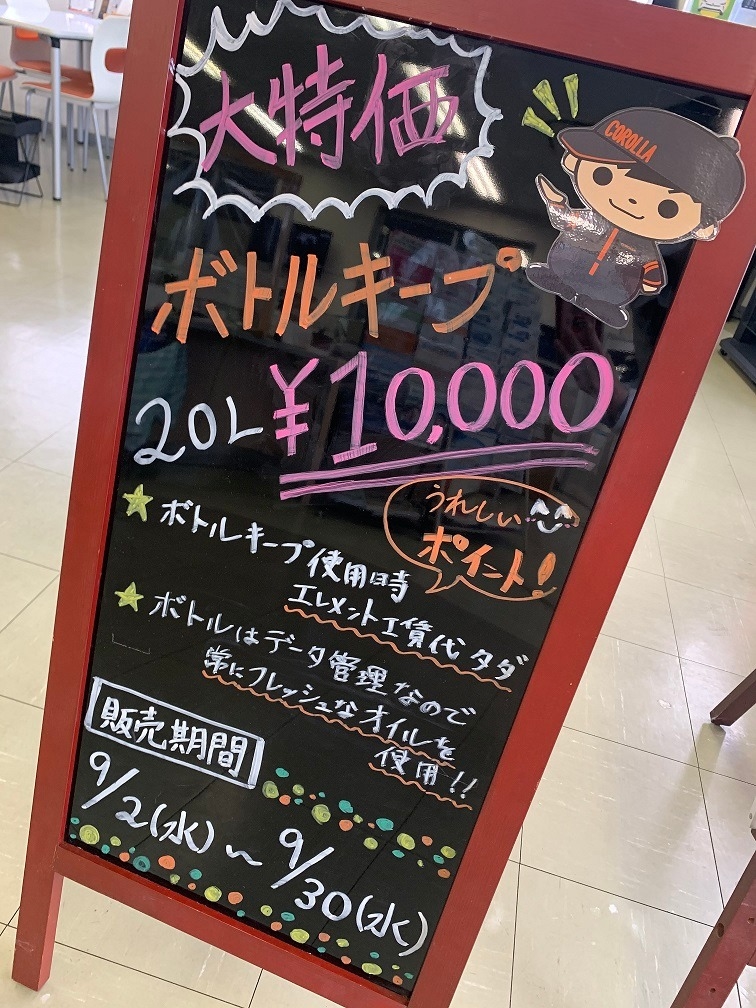 大特価
COROLLA
ボトルキープ
20L ¥10,000
うれしい
ポイント!
☆ボトルキープ使用時
エレメント工賃代タダ
☆ボトルはデータ管理なので
常にフレッシュなオイルを
使用!!
販売期間
9/2(水)~9/30(水)